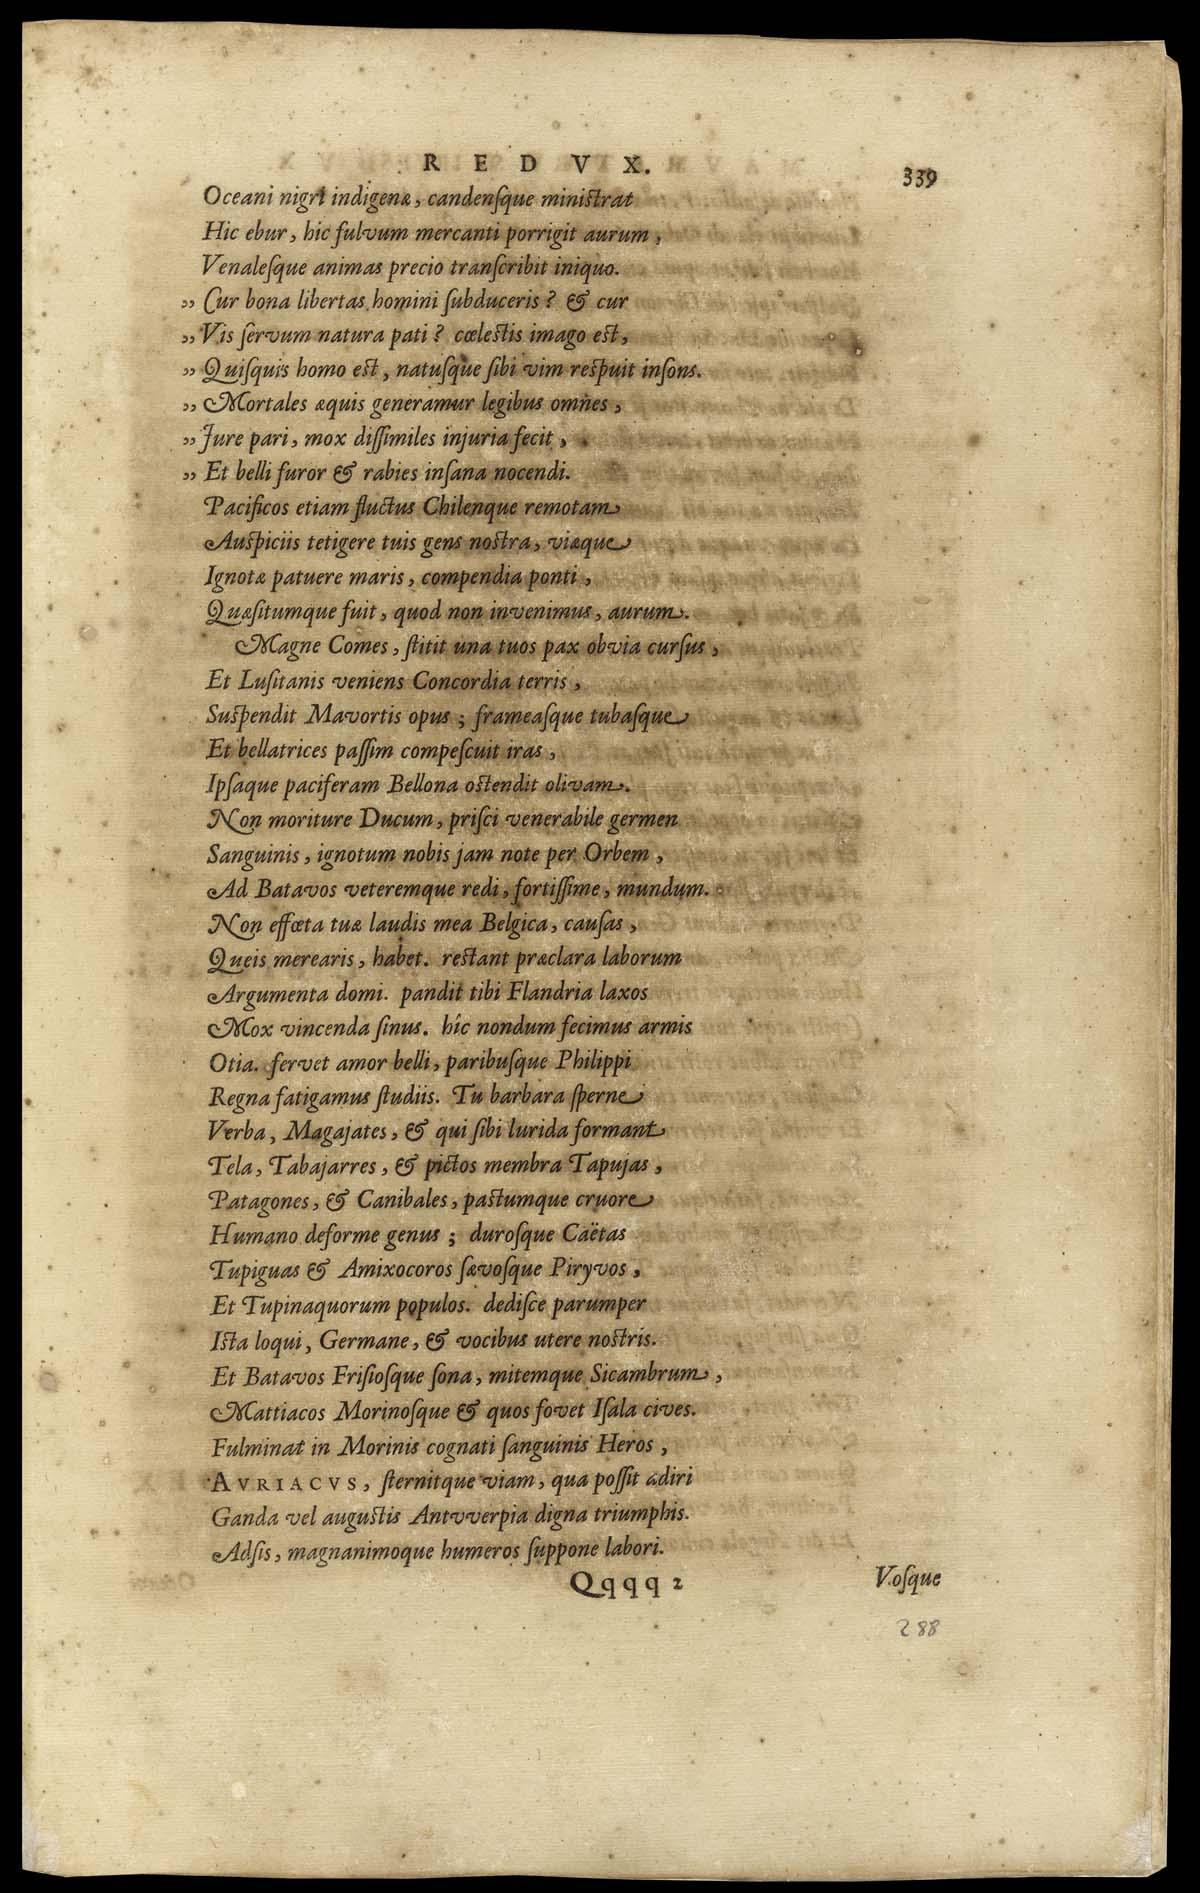 REDVX.
339
Oceani nigri indigenæ, candenſque ministrat
Hic ebur, hic fulvum mercanti porrigit aurum,
Venaleſque animas precio tranſcribit iniquo.
„ Cur bona libertas homini ſubduceris? & cur
„ Vis ſervum natura pati? cœlestis imago est,
„ Quiſquis homo est, natuſque ſibi vim reſpuit inſons.
„ Mortales æquis generamur legibus omnes,
„ Jure pari, mox diſſimiles injuria fecit,
„ Et belli furor & rabies inſana nocendi.
Pacificos etiam fluctus Chilenque remotam
Auſpiciis tetigere tuis gens nostra, viæque
Ignotæ patuere maris, compendia ponti,
Quæſitumque fuit, quod non invenimus, aurum.
Magne Comes, ſtitit una tuos pax obvia curſus,
Et Luſitanis veniens Concordia terris,
Suſpendit Mavortis opus; frameaſque tubaſque
Et bellatrices paſſim compeſcuit iras,
Ipſaque paciferam Bellona ostendit olivam.
Non moriture Ducum, priſci venerabile germen
Sanguinis, ignotum nobis jam note per Orbem,
Ad Batavos veteremque redi, fortiſſime, mundum.
Non effœta tuæ laudis mea Belgica, cauſas,
Queis merearis, habet. restant præclara laborum
Argumenta domi. pandit tibi Flandria laxos
Mox vincenda ſinus. hîc nondum fecimus armis
Otia. fervet amor belli, paribuſque Philippi
Regna fatigamus ſtudiis. Tu barbara ſperne
Verba, Magajates, & qui ſibi lurida formant
Tela, Tabajarres, & pictos membra Tapujas,
Patagones, & Canibales, pastumque cruore
Humano deforme genus; duroſque Caëtas
Tupiguas & Amixocoros ſævoſque Piryvos,
Et Tupinaquorum populos. dediſce parumper
Ista loqui, Germane, & vocibus utere nostris.
Et Batavos Friſioſque ſona, mitemque Sicambrum,
Mattiacos Morinoſque & quos fovet Iſala cives.
Fulminat in Morinis cognati ſanguinis Heros,
AVRIACVS, ſternitque viam, qua poſſit adiri
Ganda vel augustis Antvverpia digna triumphis.
Adſis, magnanimoque humeros ſuppone labori.
Qqqq 2
Voſque
288